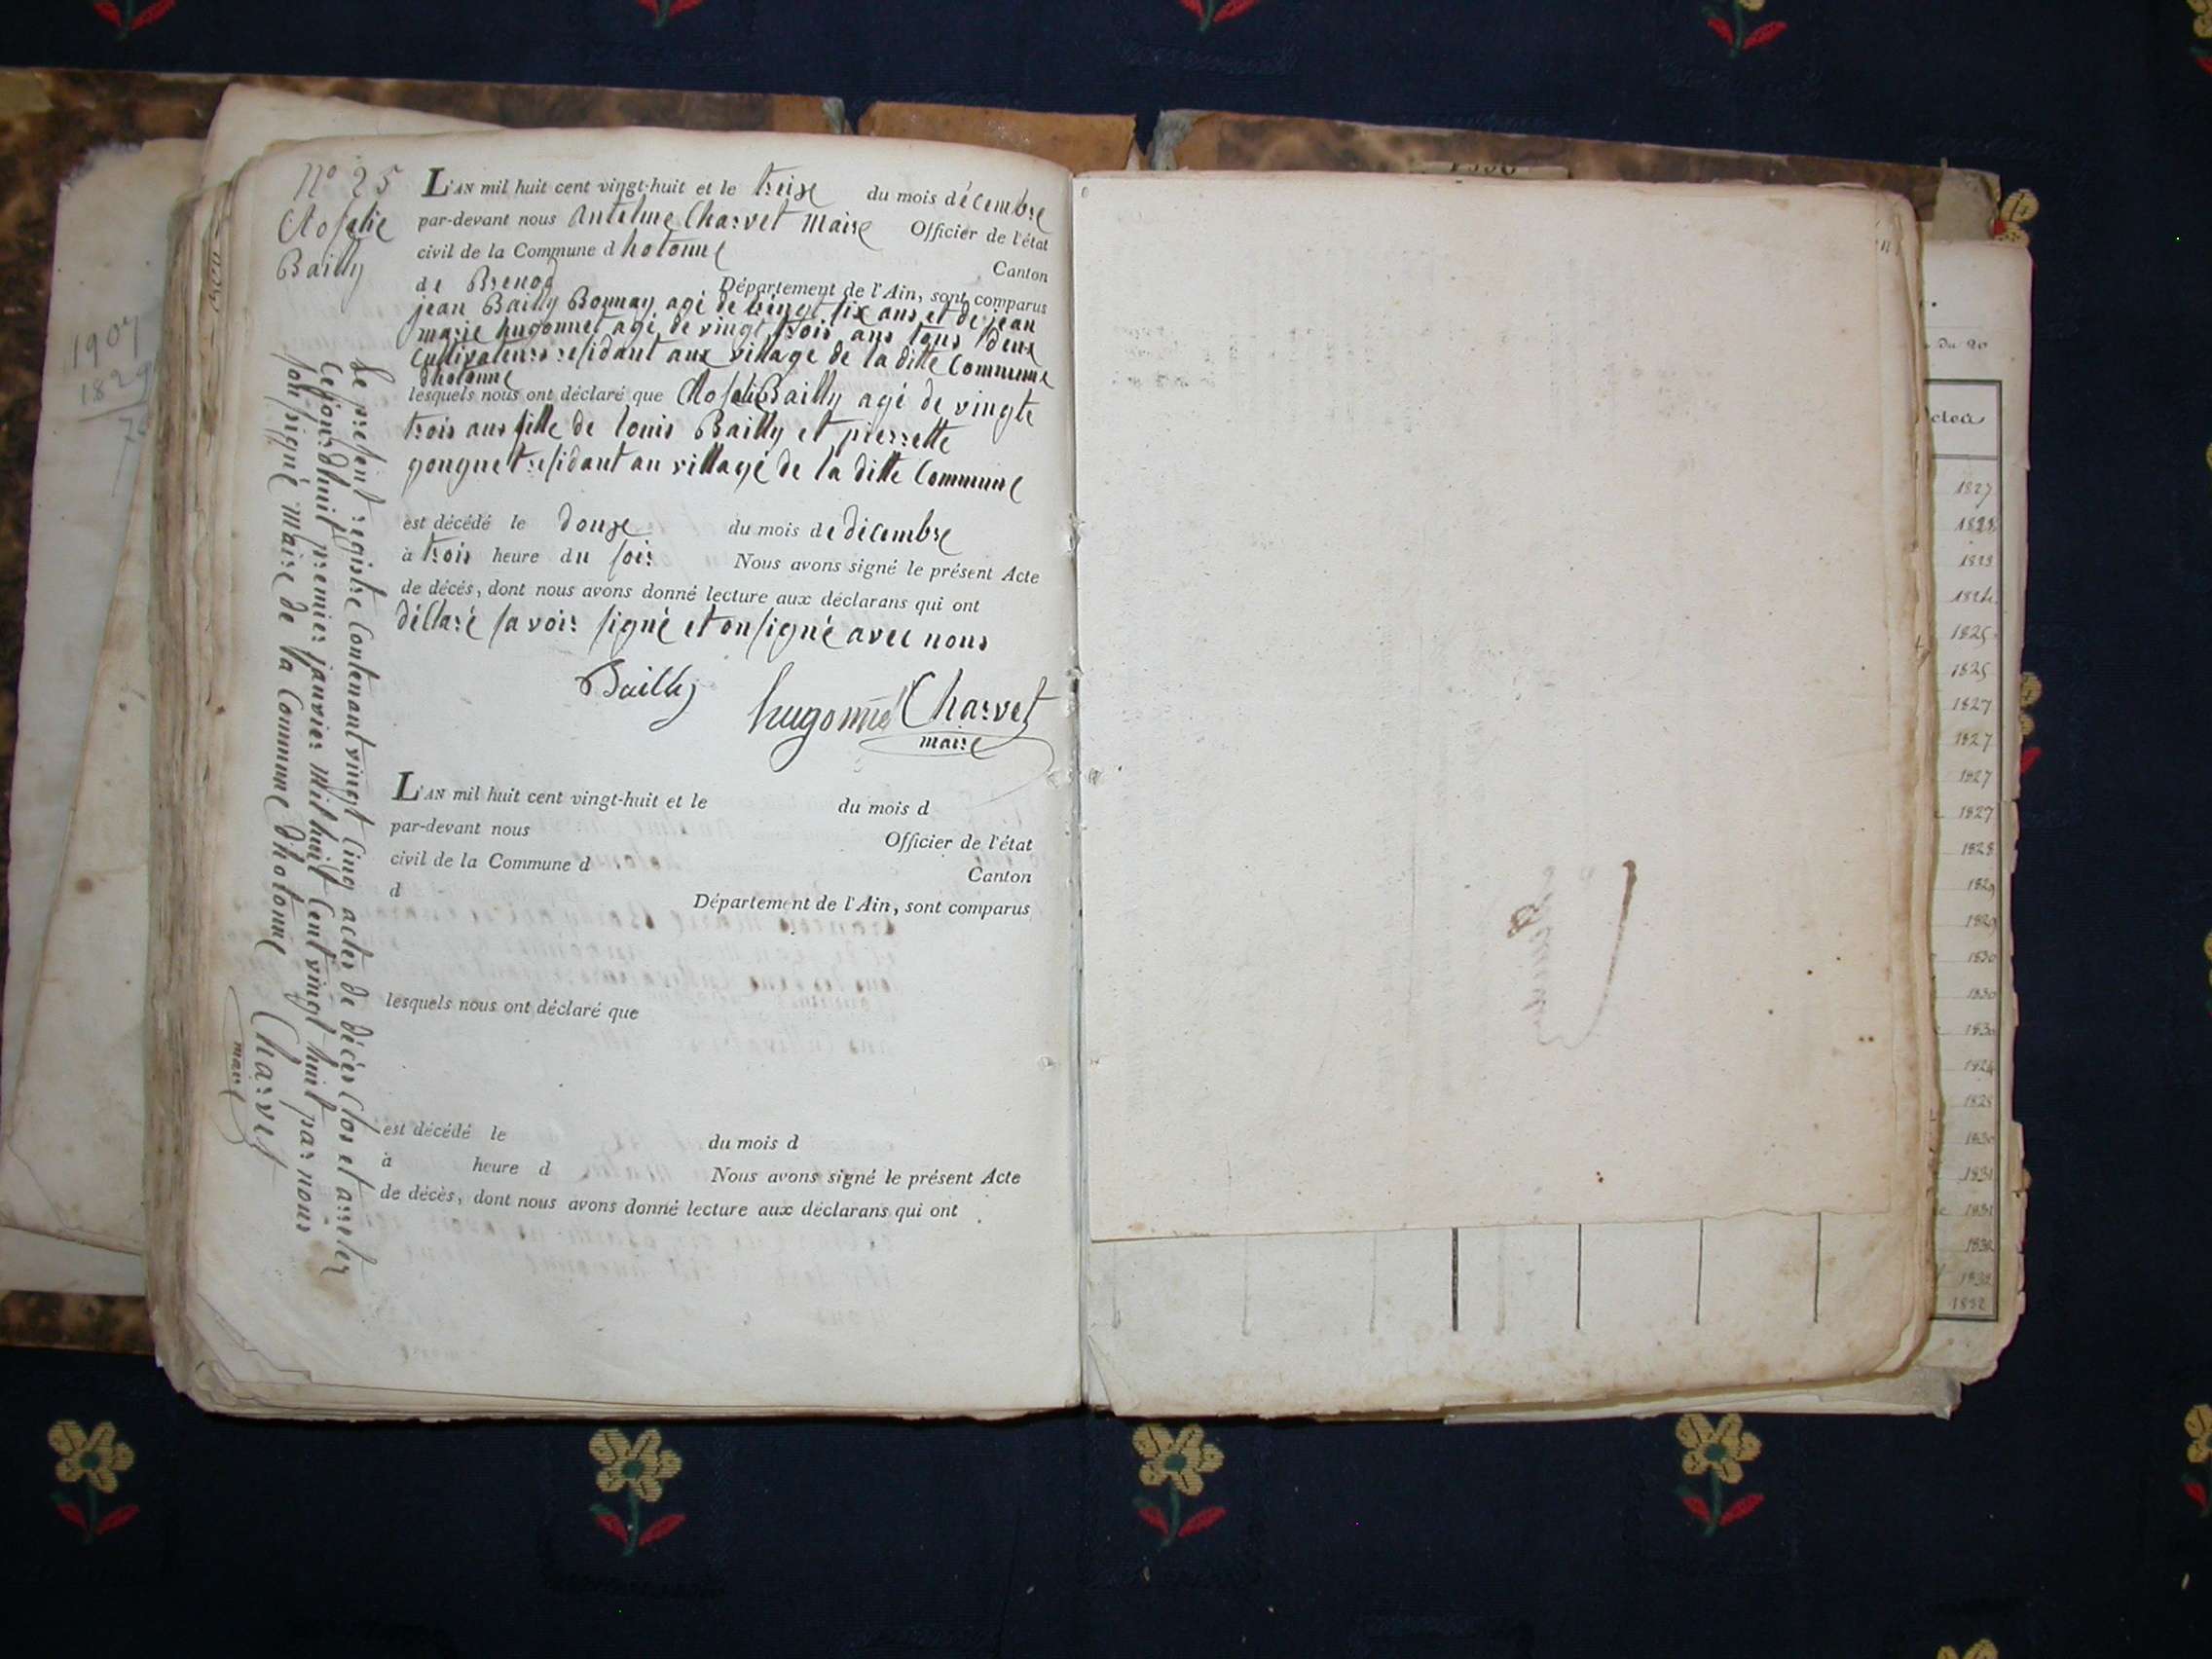 N° 25
Rosalie
Bailly
L'AN mil huit cent vingt-huit et le treize du mois décembre
par-devant nous Antelme Charvet Maire Officier de l'état
civil de la Commune d hotonne Canton
de Brenod Département de l'Ain, sont comparus
jean Bailly Bonnay agé de vingt six ans et de jean
marie hugonnet agé de vingt trois ans tous deux
Cultivateurs residant aux village de la ditte Commune
dhotonne
lesquels nous ont déclaré que Rosalie Bailly agé de vingte
trois ans fille de louis Bailly et pierrette
gonguet residant au villagé de la ditte Commune
est décédé le douze du mois de décembre
à trois heure du soir Nous avons signé le présent Acte
de décès, dont nous avons donné lecture aux déclarans qui ont
déclaré savoir signé et on signé avec nous
Bailly
hugonnet Charvet
maire
Le present registre Contenant vingt Cinq actes de décès Clos et arreter
Cejourdhuit premier janvier Mil huit Cent vingt huit par nous
soussigné Maire de la Commune d'hotonne
Charvet
maire
L'AN mil huit cent vingt-huit et le du mois d
par-devant nous Officier de l'état
civil de la Commune d Canton
d Département de l'Ain, sont comparus
lesquels nous ont déclaré que
est décédé le du mois d
à heure d Nous avons signé le présent Acte
de décès, dont nous avons donné lecture aux déclarans qui ont
1907
1829
du 20
1827
1828
1825
1825
1827
1827
1827
1827
1828
1829
1829
1830
1830
1830
1830
1831
1831
1832